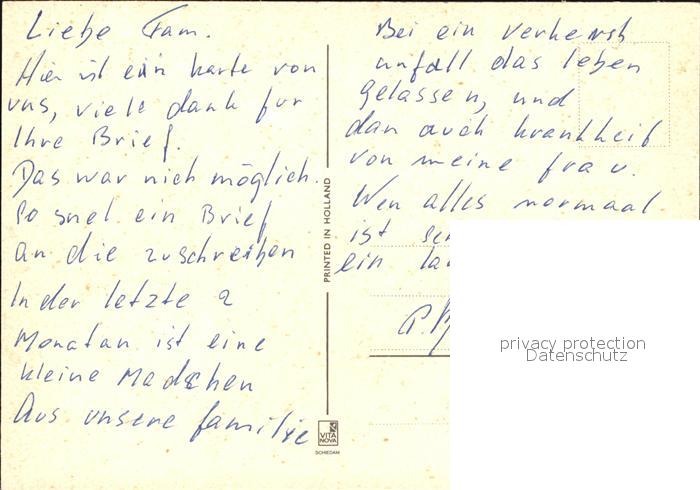 Liebe Fam.
Hier ist ein karte von
uns, viele dank fur
Ihre Brief.
Das war nich möglich.
So snel ein Brief
an die zuschreiben
In der letzte 2
Monatan ist eine
kleine Madchen
Aus unsere familie
PRINTED IN HOLLAND
VITA
NOVA
SCHIEDAM
Bei ein verkehrsh
unfall das leben
gelassen, und
dan auch krankheit
von meine frau.
Wen alles normaal
ist
ein
privacy protection
Datenschutz